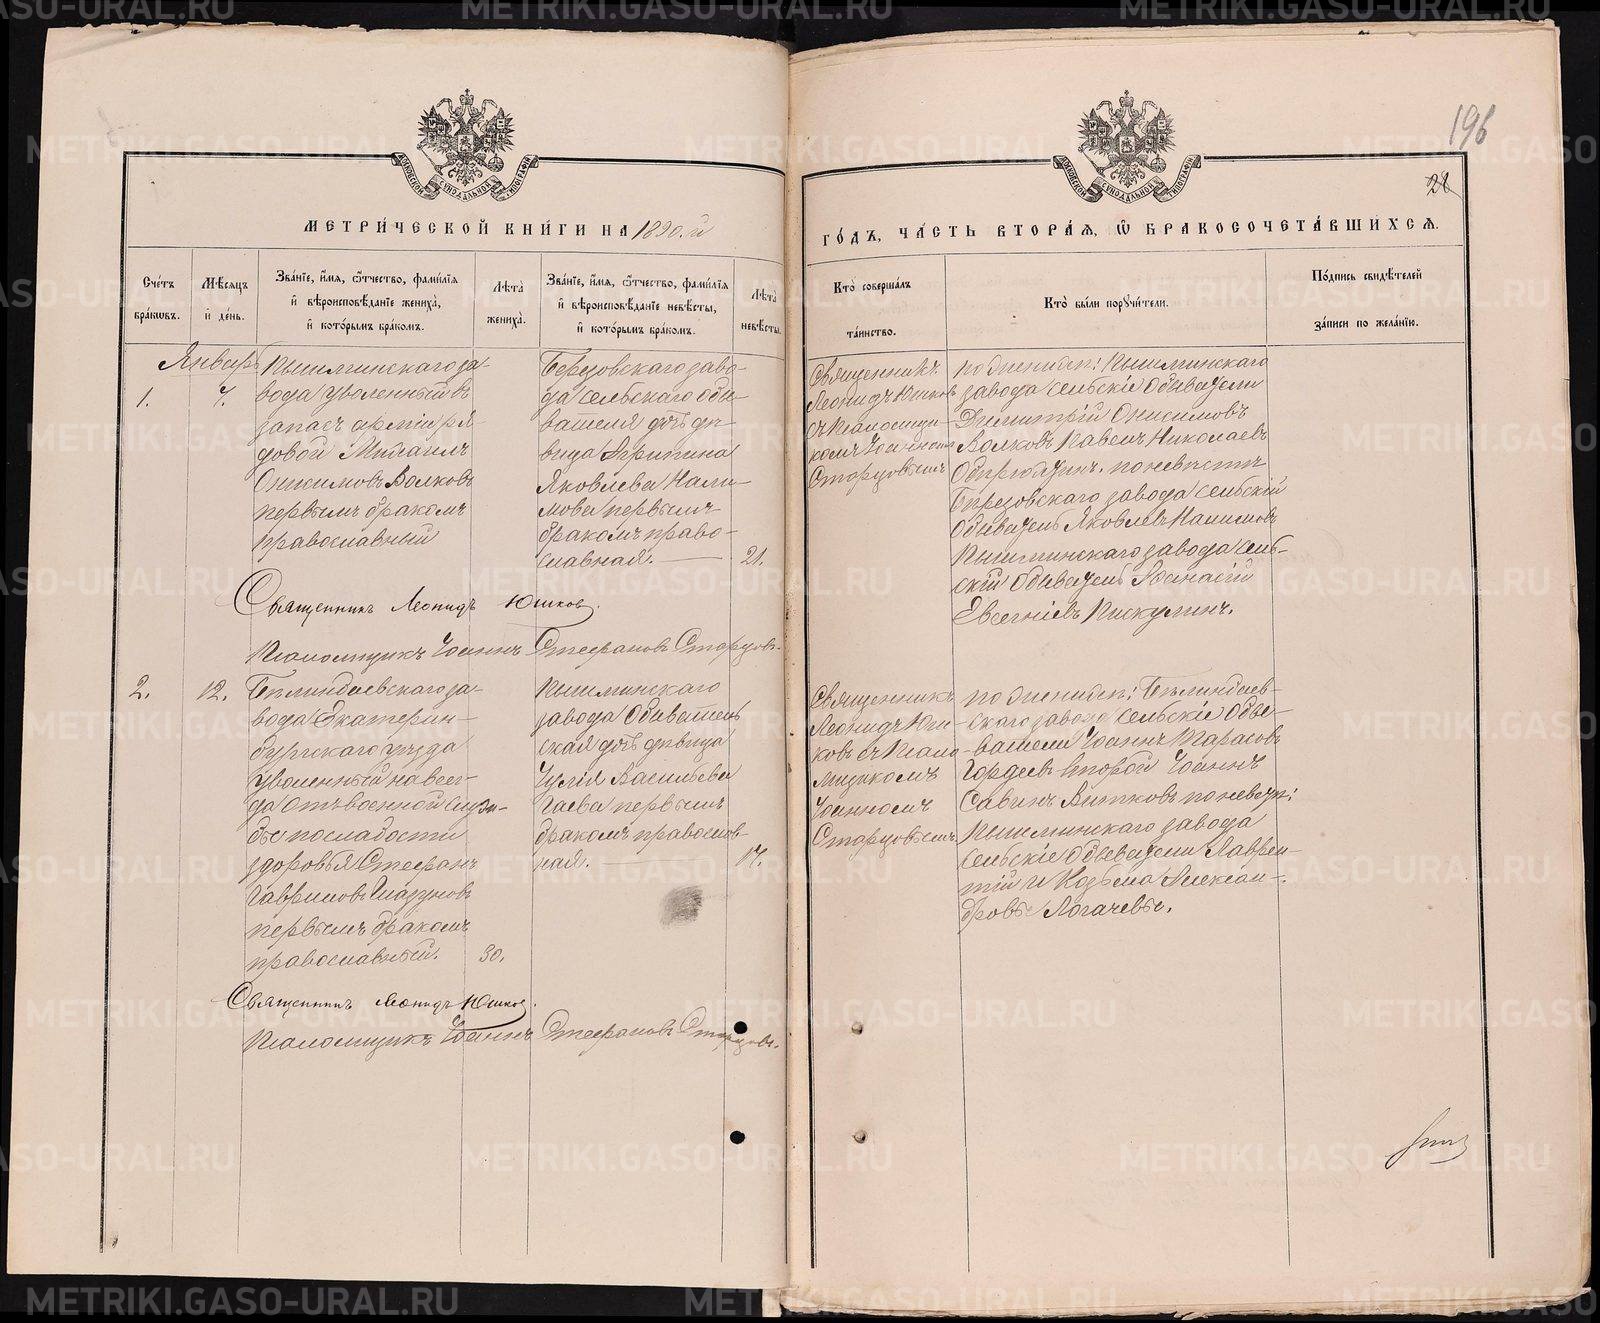 МЕТРИЧЕСКОЙ КНИГИ НА 1890.й
ГОДЪ, ЧАСТЬ ВТОРАЯ, Ѡ БРАКОСОЧЕТАВШИХСЯ.
196
28
Счетъ браковъ.
Мѣсяцъ и день.
Званіе, имя, отчество, фамилія
и вѣроисповѣданіе жениха,
и которымъ бракомъ.
Лѣта жениха.
Званіе, имя, отчество, фамилія
и вѣроисповѣданіе невѣсты,
и которымъ бракомъ.
Лѣта невѣсты.
Кто совершалъ таинство.
Кто были поручители.
Подпись свидѣтелей
записи по желанію.
Январь
1.
7.
Пышминскаго за-
вода уволенный въ
запасъ арміи ря-
довой Михаилъ
Онисимовъ Волковъ
первымъ бракомъ
православный
Березовскаго заво-
да сельскаго обы-
вателя дочь дѣ-
вица Агрипина
Яковлева Нали-
мова первымъ
бракомъ право-
славная.
21.
Священникъ
Леонидъ Юшковъ
съ псаломщи-
комъ Іоанномъ
Старцовымъ
по женихѣ: Пышминскаго
завода сельскіе обыватели
Димитрій Онисимовъ
Волковъ Павелъ Николаевъ
по невѣстѣ
Березовскаго завода сельскій
обыватель Яковлевъ Налимовъ
Пышминскаго завода сель-
скій обыватель Афанасій
Евсегніевъ Пискулинъ.
Священникъ Леонидъ Юшковъ.
Псаломщикъ Іоаннъ Стефановъ Старцовъ.
2.
12.
Билимбаевскаго за-
вода Екатерин-
бургскаго уѣзда
уволенный навсег-
да отъ военной служ-
бы по слабости
здоровья Стефанъ
Гавриловъ Глазуновъ
первымъ бракомъ
православный.
30.
Пышминскаго
завода обыватель-
ская дочь дѣвица
Іулія Васильева
Гаева первымъ
бракомъ православ-
ная.
17.
Священникъ
Леонидъ Юш-
ковъ съ псало-
мщикомъ
Іоанномъ
Старцовымъ
по женихѣ: Билимбаев-
скаго завода сельскіе обы-
ватели Іоаннъ Тарасовъ
Гордеевъ второй Іоаннъ
Савинъ Витковъ по невѣстѣ:
Пышминскаго завода
сельскіе обыватели Лаврен-
тій и Козьма Алексан-
дровы Логачевы.
Священникъ Леонидъ Юшковъ.
Псаломщикъ Іоаннъ Стефановъ Старцовъ.
METRIKI.GASO-URAL.RU